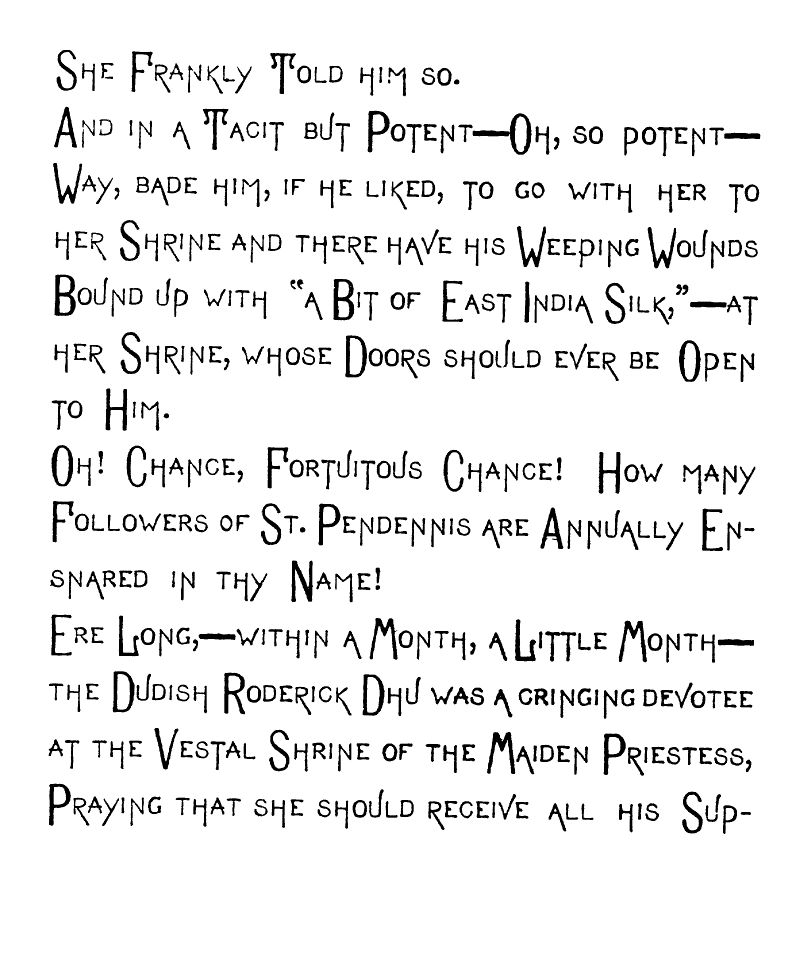 She Frankly Told him so.
And in a Tacit but Potent—Oh, so potent—
Way, bade him, if he liked, to go with her to
her Shrine and there have his Weeping Wounds
Bound up with “a Bit of East India Silk,”—at
her Shrine, whose Doors should ever be Open
to Him.
Oh! Chance, Fortuitous Chance! How many
Followers of St. Pendennis are Annually En-
snared in thy Name!
Ere Long,—within a Month, a Little Month—
the Dudish Roderick Dhu was a cringing devotee
at the Vestal Shrine of the Maiden Priestess,
Praying that she should receive all his Sup-